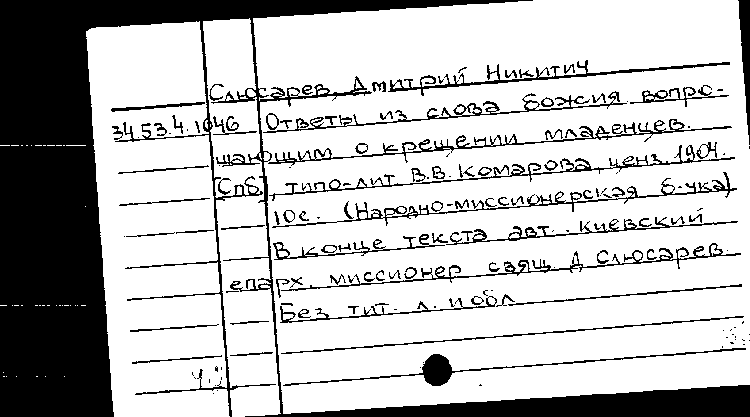 Слюсарев, Дмитрий Никитич
34.53.4.1046 Ответы из слова божия вопро-
шающим о крещении младенцев.
[Спб.], типо-лит. В.В. Комарова, ценз. 1904.
10с. (Народно-миссионерская б-чка)
В конце текста авт. киевский
епарх. миссионер свящ. Д Слюсарев.
Без тит. л. и обл